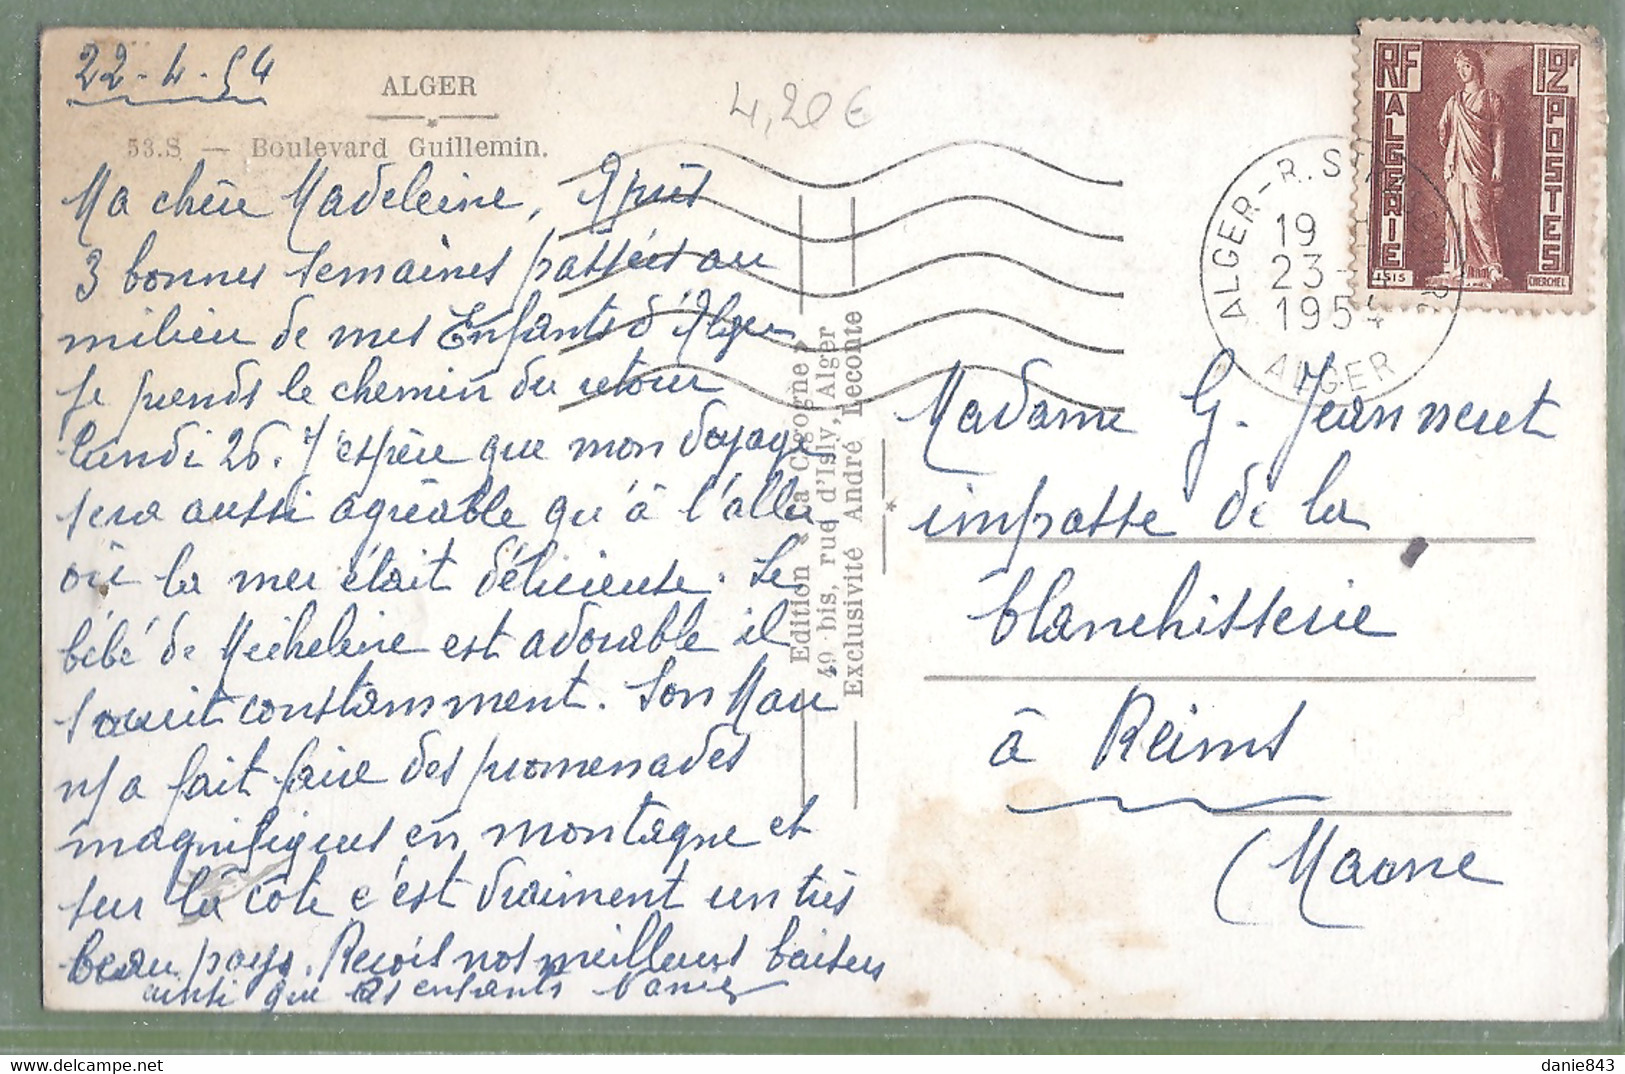 22-4-54
ALGER
53.S — Boulevard Guillemin.
4,20€
Ma chère Madeleine, Après
3 bonnes semaines passées au
milieu de mes Enfants d'Alger
je prends le chemin du retour
lundi 26. J'espère que mon voyage
sera aussi agréable qu'à l'aller
où la mer était délicieuse. Le
bébé de Micheline est adorable il
sourit constamment. Son Mari
m'a fait faire des promenades
magnifiques en montagne et
sur la côte c'est vraiment un très
beau pays. Reçois nos meilleurs baisers
ainsi que les enfants
Edition « La Cigogne »
49 bis, rue d'Isly, Alger
Exclusivité André Leconte
RF
12F
ALGERIE
POSTES
ISIS
CHERCHEL
ALGER-R.S
19
23-4
1954
ALGER
Madame G. Jeanneret
impasse de la
blanchisserie
à Reims
(Marne
danie843